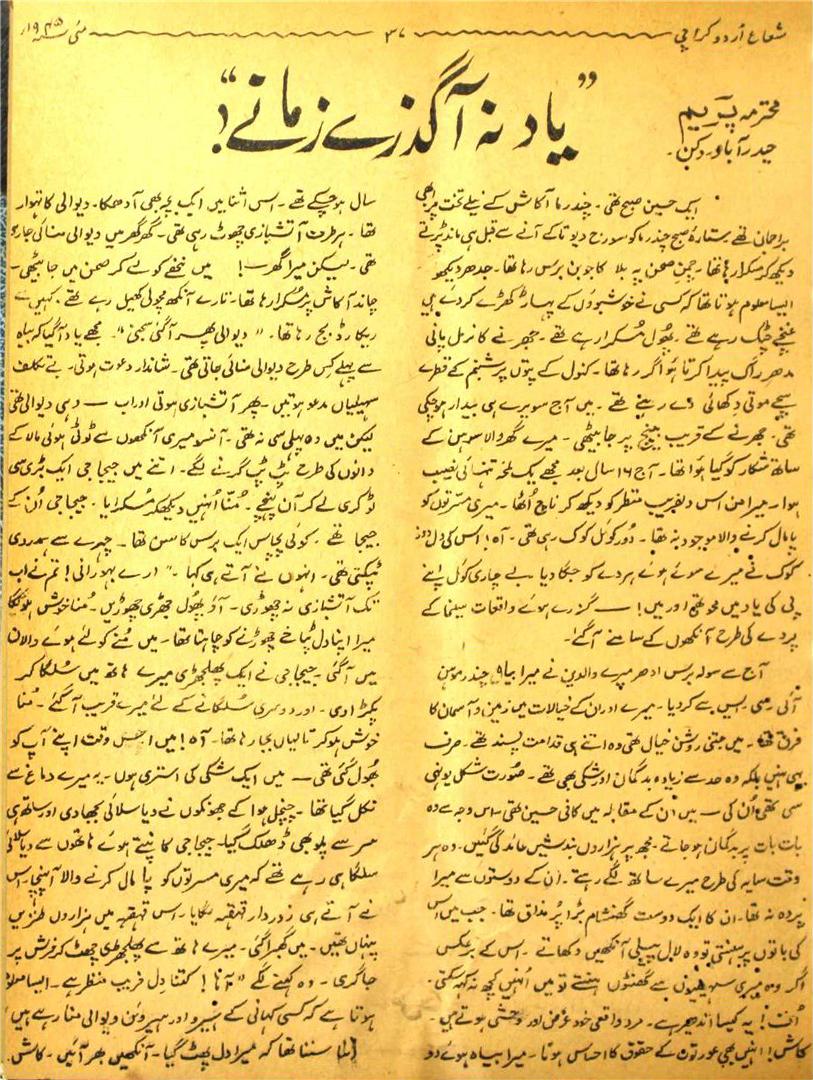 شعاع اُردو کراچی
۳۷
مئی سنہ ۱۹۴۵ء
"یاد نہ آ گذرے زمانے!"
محترمہ پریم
حیدرآباد۔ دکن۔
ایک حسین صبح تھی۔ چندرما آکاش کے نیلے تخت پر ابھی
براجمان تھے ستارۂ صبح چندرما کو سورج دیوتا کے آنے سے قبل ہی ماند پڑتے
دیکھ کر مسکرا رہا تھا۔ چمنِ صحن پہ بلا کا جوبن برس رہا تھا۔ جدھر دیکھو
ایسا معلوم ہوتا تھا کہ کسی نے خوشبوؤں کے پہاڑ کھڑے کر دئے ہیں
غنچے چٹک رہے تھے۔ پھول مُسکرا رہے تھے۔ جھرنے کا نرمل پانی
مدھر راگ پیدا کرتا ہوا گر رہا تھا۔ کنول کے پتوں پر شبنم کے قطرے
سچے موتی دکھائی دے رہے تھے۔ میں آج سویرے ہی بیدار ہو چکی
تھی۔ جھرنے کے قریب بینچ پر جا بیٹھی۔ میرے گھر والا سوہن کے
ساتھ شکار کو گیا ہوا تھا۔ آج ۱۶ سال بعد مجھے یک لمحہ تنہائی نصیب
ہوا۔ میرا من اس دلفریب منظر کو دیکھ کر ناچ اُٹھا۔ میری مسرتوں کو
پامال کرنے والا موجود نہ تھا۔ دُور کوئل کوک رہی تھی۔ آہ! اس کی دل دوز
کوک نے میرے سوئے ہوئے ہردے کو جگا دیا۔ بے چاری کوئل اپنے
پی کی یاد میں محو تھی اور میں! — گزرے ہوئے واقعات سینما کے
پردے کی طرح آنکھوں کے سامنے آ گئے۔
آج سے سولہ برس ادھر میرے والدین نے میرا بیاہ چندر موہن
آئی۔ سی۔ ایس سے کر دیا۔ میرے اور ان کے خیالات میں زمین و آسمان کا
فرق تھا۔ میں جتنی روشن خیال تھی وہ اتنے ہی قدامت پسند تھے۔ صرف
یہی نہیں بلکہ وہ حد سے زیادہ بدگمان اور شکی بھی تھے۔ صورت شکل یونہی
سی تھی اُن کی — میں اُن کے مقابلہ میں کافی حسین تھی۔ اس وجہ سے وہ
بات بات پر بدگمان ہو جاتے۔ مجھ پر ہزاروں بندشیں عائد کی گئیں۔ وہ ہر
وقت سایہ کی طرح میرے ساتھ لگے رہتے۔ ان کے دوستوں سے میرا
پردہ نہ تھا۔ ان کا ایک دوست گھنشام بڑا پُر مذاق تھا۔ جب میں اس
کی باتوں پر ہنستی تو وہ لال پیلی آنکھیں دکھاتے۔ اس کے برعکس
اگر وہ میری سہیلیوں سے گھنٹوں ہنستے تو میں اُنہیں کچھ نہ کہہ سکتی۔
اُف! یہ کیسا اندھیر ہے۔ مرد واقعی خود غرض اور وحشی ہوتے ہیں۔
کاش! انہیں بھی عورتوں کے حقوق کا احساس ہوتا۔ میرا بیاہ ہوئے دو
سال ہو چکے تھے۔ اس اثنا میں ایک بچہ بھی آ دھمکا۔ دیوالی کا تہوار
تھا۔ ہر طرف آتشبازی چھوٹ رہی تھی۔ گھر گھر میں دیوالی منائی جا رہی
تھی۔ لیکن میرا گھر —! میں ننھے کو لے کر صحن میں جا بیٹھی۔
چاند آکاش پر مسکرا رہا تھا۔ تارے آنکھ مچولی کھیل رہے تھے۔ کہیں سے
ریکارڈ بج رہا تھا۔ "دیوالی پھر آ گئی سجنی"۔ مجھے یاد آ گیا کہ بیاہ
سے پہلے کس طرح دیوالی منائی جاتی تھی۔ شاندار دعوت ہوتی۔ بے تکلف
سہیلیاں مدعو ہوتیں۔ پھر آتشبازی ہوتی اور اب — وہی دیوالی تھی
لیکن میں وہ پہلی سی نہ تھی۔ آنسو میری آنکھوں سے ٹوٹی ہوئی مالا کے
دانوں کی طرح ٹپ ٹپ گرنے لگے۔ اتنے میں جیجا جی ایک بڑی سی
ٹوکری لے کر آن پہنچے۔ مُنّا اُنہیں دیکھ کر مُسکرایا۔ جیجا جی اُن کے
جیجا تھے۔ کوئی پچاس ایک برس کا سن تھا۔ چہرے سے ہمدردی
ٹپکتی تھی۔ انہوں نے آتے ہی کہا۔ "ارے بہورانی! تم نے اب
تک آتشبازی نہ چھوڑی۔ آؤ پھول جھڑی چھوڑیں۔ مُنا خوش ہو گا"
میرا اپنا دل پٹاخے چھوڑنے کو چاہتا تھا۔ میں مُنے کو لئے ہوئے دالان
میں آ گئی۔ جیجا جی نے ایک پھلجھڑی میرے ہاتھ میں سُلگا کر
پکڑا دی۔ اور دوسری سُلگانے کے لئے میرے قریب آ گئے۔ مُنا
خوش ہو کر تالیاں بجا رہا تھا۔ آہ! میں اس وقت اپنے آپ کو
بھول گئی تھی — میں ایک شکی کی استری ہوں۔ یہ میرے دماغ سے
نکل گیا تھا۔ چنچل ہوا کے جھونکوں نے دیا سلائی بجھا دی اور ساتھ ہی
سر سے پلو بھی ڈھلک گیا۔ جیجا جی کانپتے ہوئے ہاتھوں سے دیا سلائی
سلگا ہی رہے تھے کہ میری مسرتوں کو پامال کرنے والا آ پہنچا۔ اس
نے آتے ہی زوردار قہقہہ لگایا۔ اس قہقہہ میں ہزاروں طنزیں
پنہاں تھیں۔ میں گھبرا گئی۔ میرے ہاتھ سے پھلجھڑی چھٹ کر فرش پر
جا گری۔ وہ کہنے لگے "آہا! کتنا دل فریب منظر ہے۔ ایسا معلوم
ہوتا ہے کہ کسی کہانی کے ہیرو اور ہیروئن دیوالی منا رہے ہیں"
سننا تھا کہ میرا دل پھٹ گیا۔ آنکھیں بھر آئیں۔ کاش